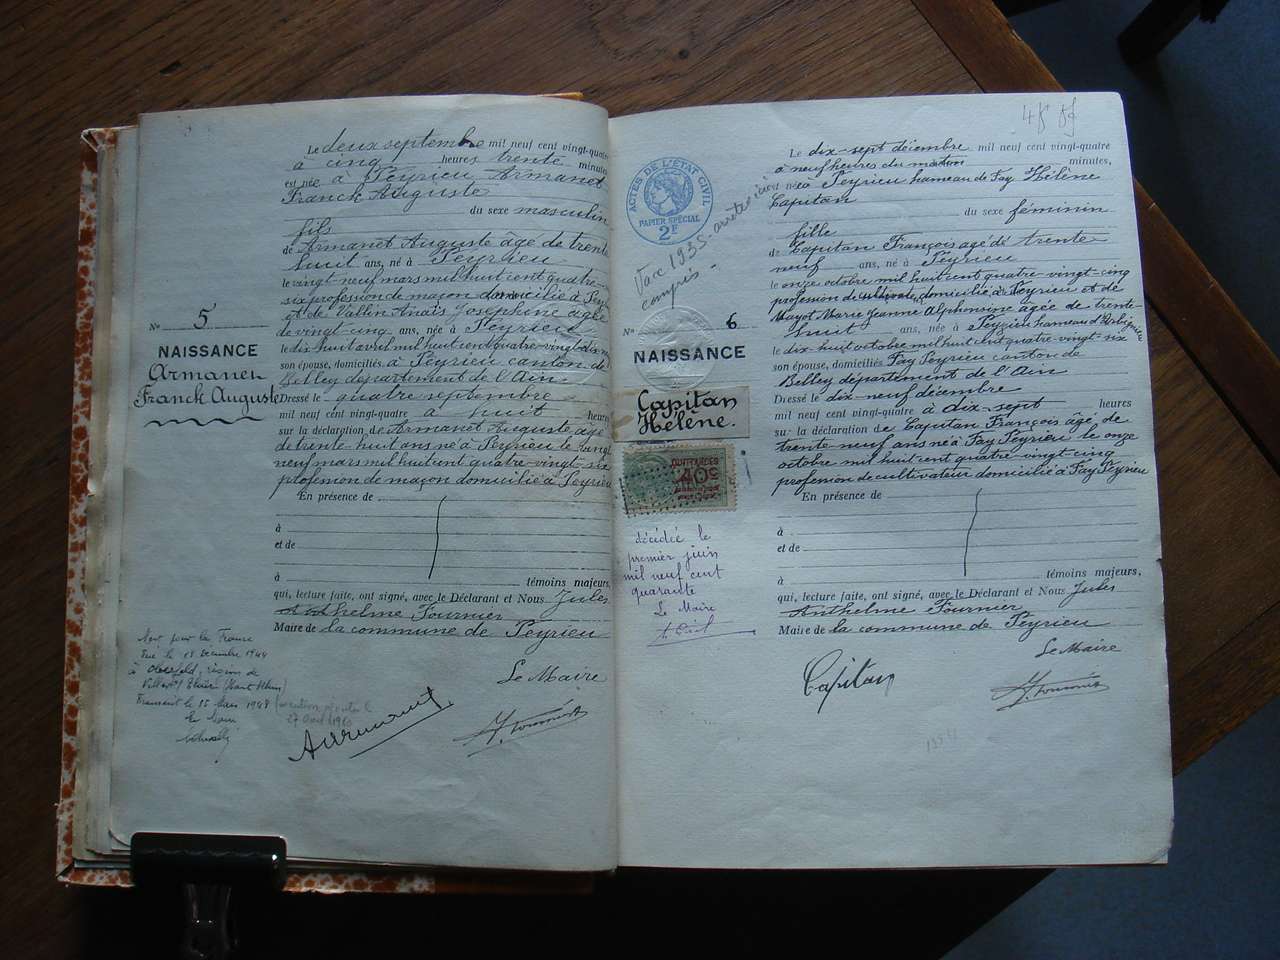 Le deux septembre mil neuf cent vingt-quatre
à cinq heures trente minutes,
est née à Peyrieu Armanet
Franck Auguste
du sexe masculin
fils
de Armanet Auguste âgé de trente
huit ans, né à Peyrieu
le vingt neuf mars mil huit cent quatre-vingt
six profession de maçon domicilié à Peyrieu
et de Vallin Anaïs Joséphine âgée
de vingt cinq ans, née à Peyrieu
le dix huit avril mil huit cent quatre-vingt-dix-neuf
son épouse, domiciliés à Peyrieu canton de
Belley département de l'Ain
Dressé le quatre septembre
mil neuf cent vingt-quatre à huit heures
sur la déclaration de Armanet Auguste âgé
de trente huit ans né à Peyrieu le vingt
neuf mars mil huit cent quatre-vingt-six
profession de maçon domicilié à Peyrieu
En présence de
à
et de
à témoins majeurs,
qui, lecture faite, ont signé, avec le Déclarant et Nous Jules
Anthelme Fournier
Maire de la commune de Peyrieu
Le Maire
No 5
NAISSANCE
Armanet
Franck Auguste
Mort pour la France
Tué le 15 décembre 1944
à région de
(Haut Rhin)
Transcrit le 15 Mars 1948
27 Avril 1960
Le Maire
48
ACTES DE L'ÉTAT CIVIL
PAPIER SPÉCIAL
2F
1935
compris.
No 6
NAISSANCE
Capitan
Hélène.
QUITTANCES
40c
décédée le
premier juin
mil neuf cent
quarante
Le Maire
Le dix-sept décembre mil neuf cent vingt-quatre
à neuf heures du matin minutes,
est née à Peyrieu hameau de Fay Hélène
Capitan
du sexe féminin
fille
de Capitan François âgé de trente
neuf ans, né à Peyrieu
le onze octobre mil huit cent quatre-vingt-cinq
profession de cultivateur domicilié à Peyrieu et de
Mayot Marie Jeanne Alphonsine âgée de trente-
huit ans, née à Peyrieu hameau d'Arbignieu
le dix-huit octobre mil huit cent quatre-vingt-six
son épouse, domiciliés Fay Peyrieu canton de
Belley département de l'Ain
Dressé le dix-neuf décembre
mil neuf cent vingt-quatre à dix-sept heures
sur la déclaration de Capitan François âgé de
trente neuf ans né à Fay Peyrieu le onze
octobre mil huit cent quatre-vingt-cinq
profession de cultivateur domicilié à Fay Peyrieu
En présence de
à
et de
à témoins majeurs,
qui, lecture faite, ont signé, avec le Déclarant et Nous Jules
Anthelme Fournier
Maire de la commune de Peyrieu
Le Maire
Capitan